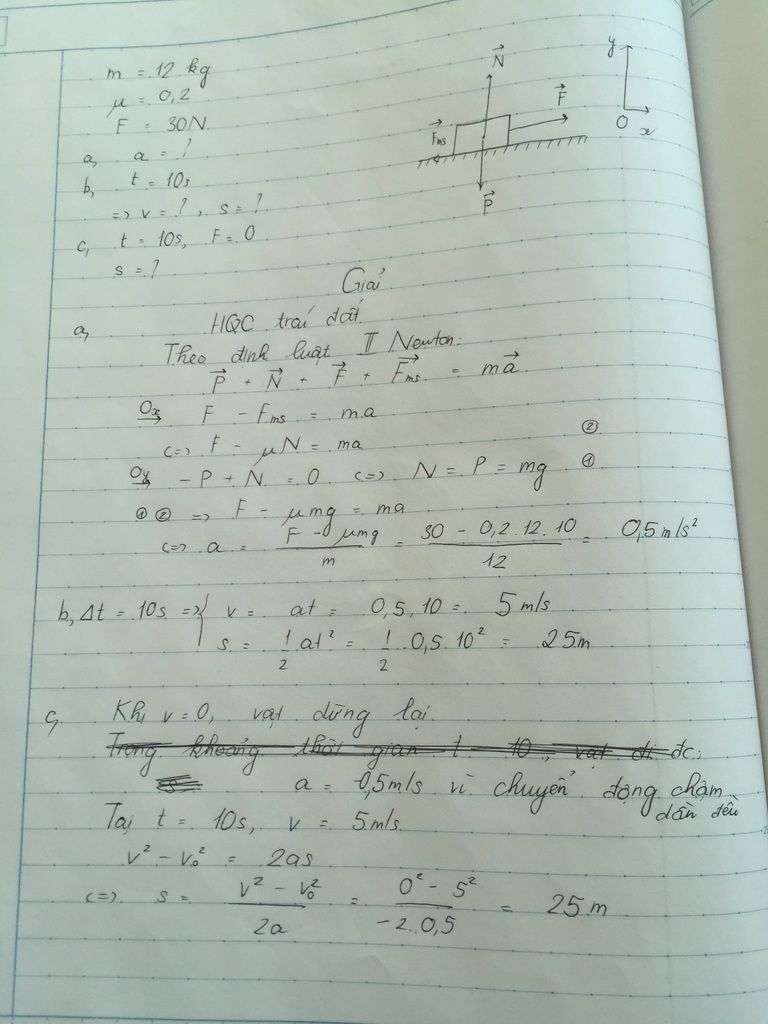 m = 12 kg
μ = 0,2
F = 30N
a, a = ?
b, t = 10s
=> v = ?, s = ?
c, t = 10s, F = 0
s = ?
N
F
Fms
P
y
O x
Giải
a, HQC trái đất
Theo định luật II Newton:
P + N + F + Fms = ma
Ox F - Fms = m.a
<=> F - μN = ma ②
Oy - P + N = 0 <=> N = P = mg ①
① ② => F - μmg = ma
<=> a = (F - μmg)/m = (30 - 0,2.12.10)/12 = 0,5m/s²
b, Δt = 10s => { v = at = 0,5.10 = 5m/s
s = 1/2 at² = 1/2 . 0,5.10² = 25m
c, Khi v = 0, vật dừng lại.
Trong khoảng thời gian t 10, vật đi đc:
a = -0,5m/s vì chuyển động chậm
dần đều
Tại t = 10s, v = 5m/s
v² - v₀² = 2as
<=> s = (v² - v₀²)/2a = (0² - 5²)/(-2.0,5) = 25m